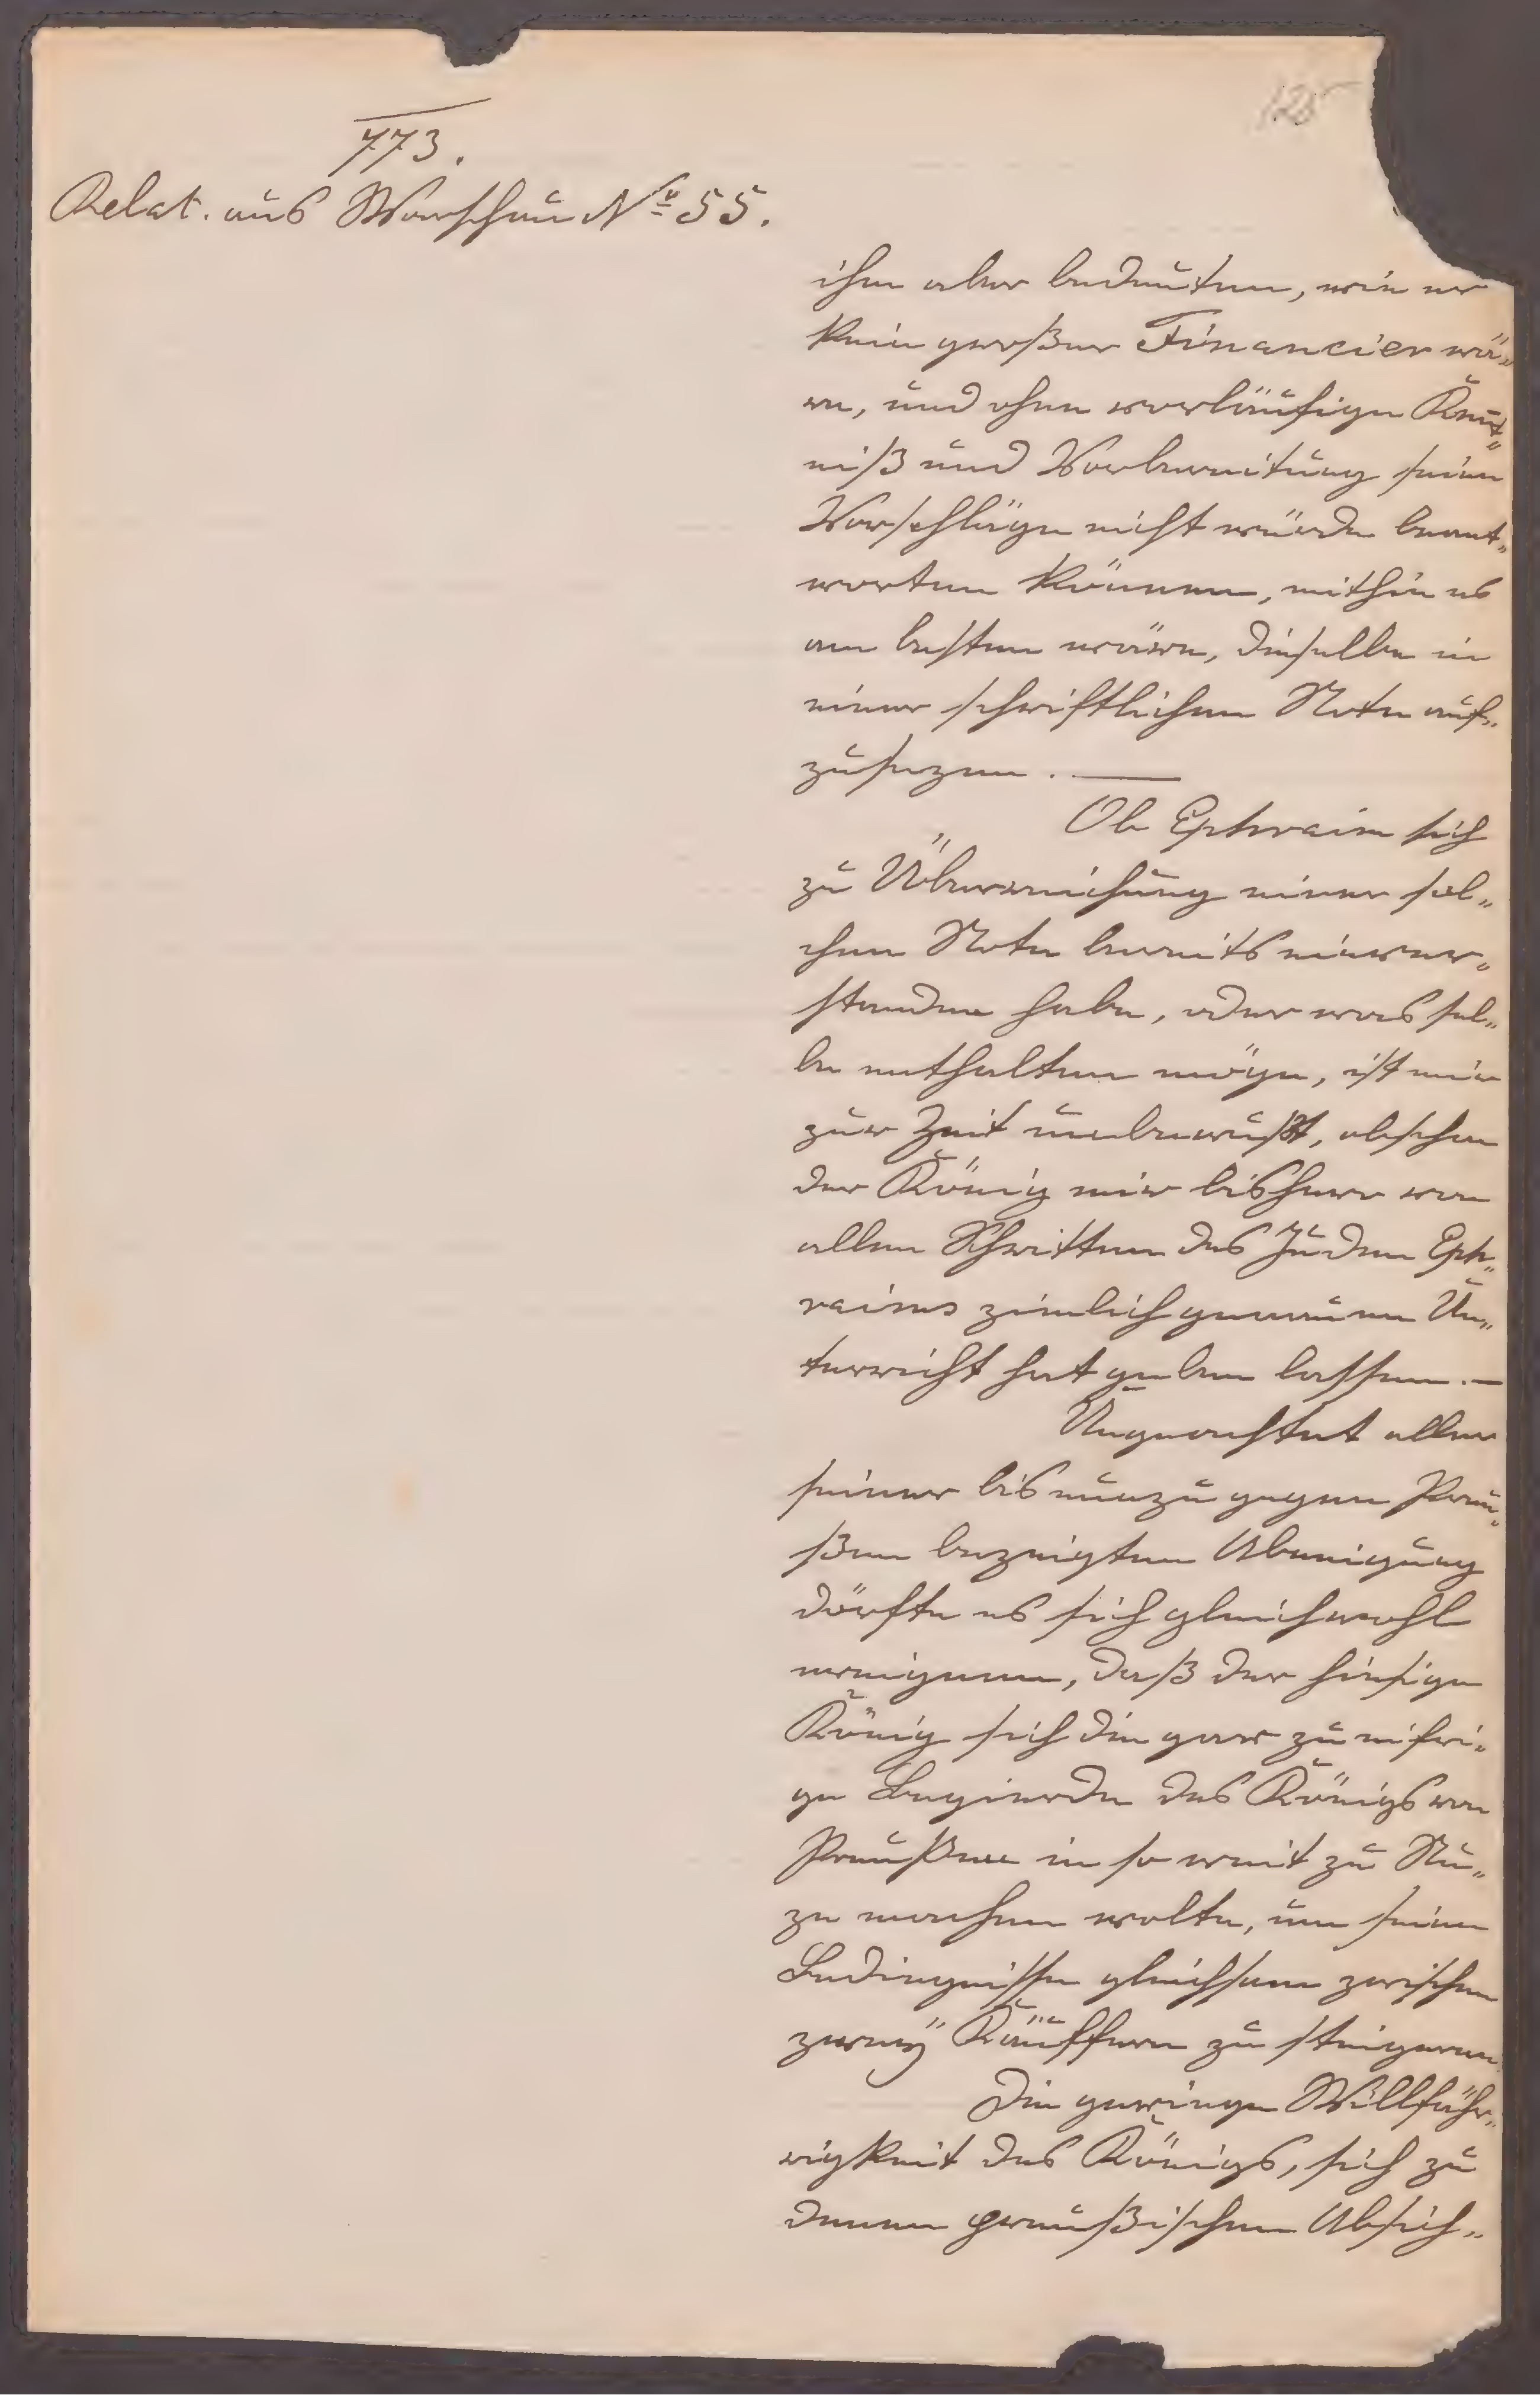 125
773.
Relat. aus Warschau No 55.
ihm aber bedeuten, wie er
kein großer Financier wä„
re, und ohne vorläufige Kent„
niß und Vorbereitung seine
Vorschläge nicht würde beant„
worten können, mithin es
am besten wäre, dieselbe in
einer schriftlichen Note auf„
zusezen. —
Ob Ephraim sich
zu Überreichung einer sol„
chen Note bereits einver„
standen habe, oder was sel„
be enthalten möge, ist mir
zur Zeit unbewußt, obschon
der König mir bishero von
allen Schritten des Juden Eph„
raims zimlich genauen Un„
terricht hat geben lassen. —
Ungeachtet aller
seiner bis nunzu gegen Preu„
ßen bezeigten Abneigung
dörfte es sich gleichwohl
ereignen, daß der hiesige
König sich die gar zu eifri„
ge Begierde des Königs von
Preußen in so weit zu Nu„
ze machen wolte, um seine
Bedingnisse gleichsam zwischen
zwey Käuffern zu steigeren
Die geringe Willfähr„
rigkeit des Königs, sich zu
denen preußischen Absich„